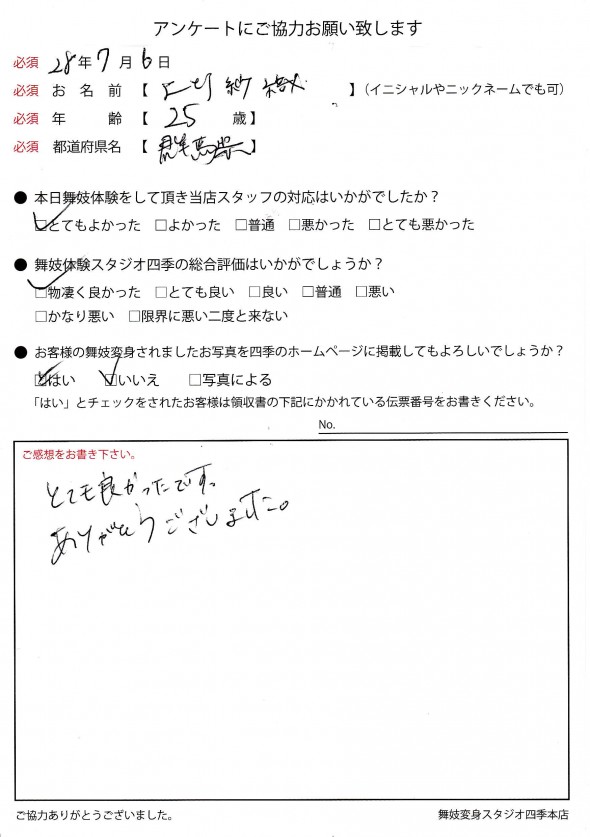 アンケートにご協力お願い致します
必須 28年7月6日
必須 お名前【 】(イニシャルやニックネームでも可)
必須 年齢【 25 歳】
必須 都道府県名【 群馬県 】
● 本日舞妓体験をして頂き当店スタッフの対応はいかがでしたか？
☑とてもよかった □よかった □普通 □悪かった □とても悪かった
● 舞妓体験スタジオ四季の総合評価はいかがでしょうか？
☑物凄く良かった □とても良い □良い □普通 □悪い
□かなり悪い □限界に悪い二度と来ない
● お客様の舞妓変身されましたお写真を四季のホームページに掲載してもよろしいでしょうか？
☑はい ☑いいえ □写真による
「はい」とチェックをされたお客様は領収書の下記にかかれている伝票番号をお書きください。
No.
ご感想をお書き下さい。
とても良かったです。
ありがとうございました。
ご協力ありがとうございました。 舞妓変身スタジオ四季本店